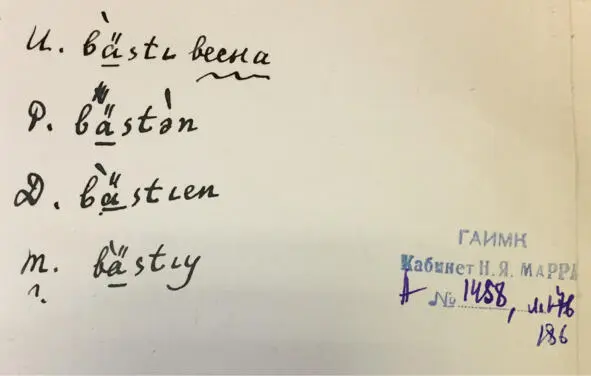 И. bä̀stı весна
Р. bästə̀n
D. bä̀stıen
т. bä̀stıy
ГАИМК
Кабинет Н.Я. МАРРА
А № 1458, л. 176
186